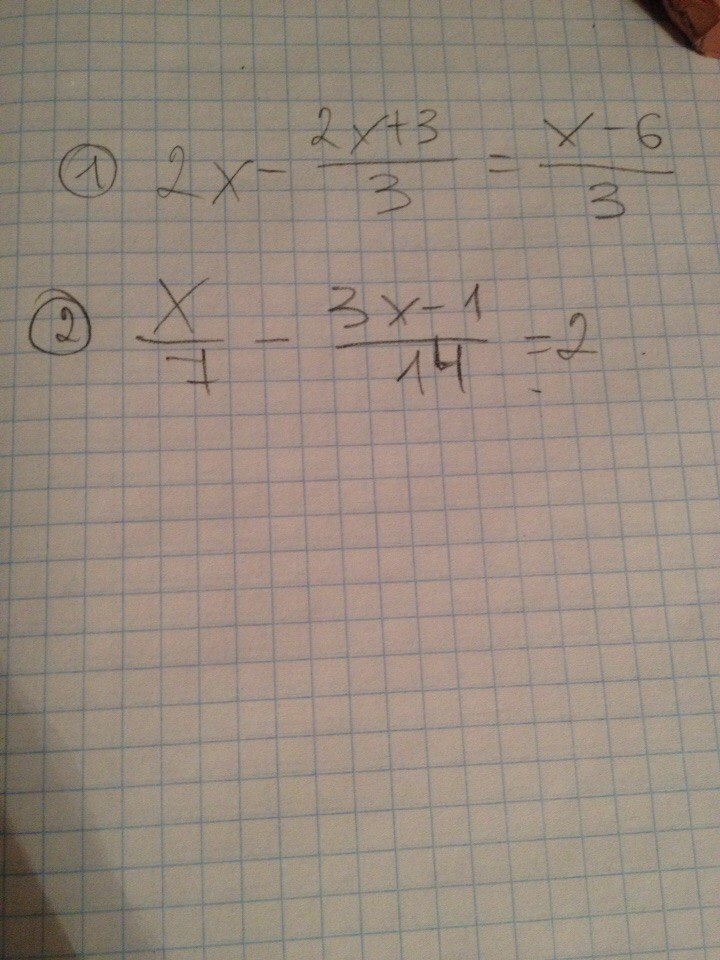 ① 2x - (2x+3)/3 = (x-6)/3
② x/7 - (3x-1)/14 = 2